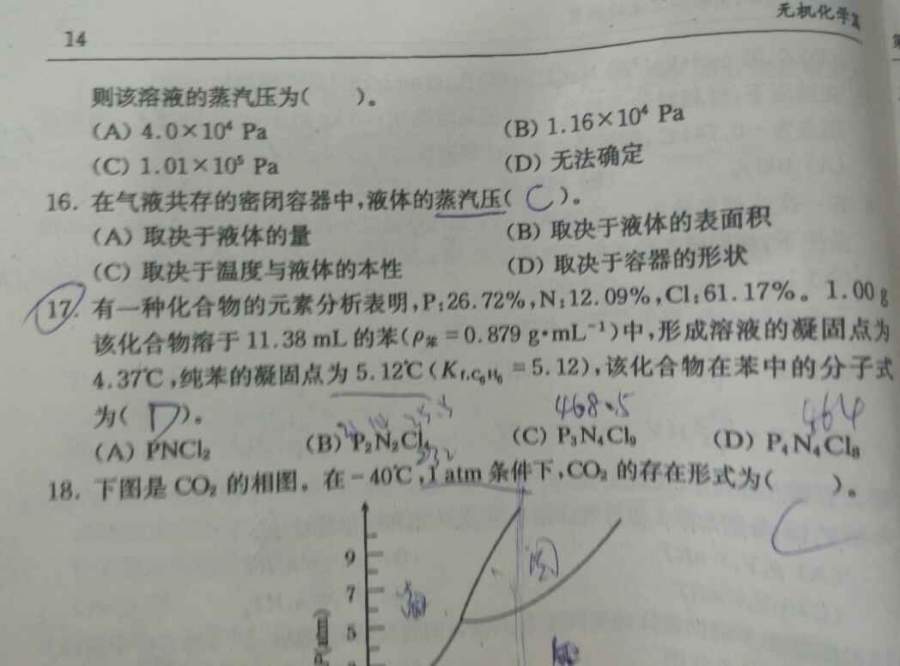 无机化学
14
则该溶液的蒸汽压为(  )。
(A) 4.0×10⁴ Pa (B) 1.16×10⁴ Pa
(C) 1.01×10⁵ Pa (D) 无法确定
16. 在气液共存的密闭容器中,液体的蒸汽压( C )。
(A) 取决于液体的量 (B) 取决于液体的表面积
(C) 取决于温度与液体的本性 (D) 取决于容器的形状
17. 有一种化合物的元素分析表明,P:26.72%,N:12.09%,Cl:61.17%。1.00 g
该化合物溶于 11.38 mL 的苯(ρ苯=0.879 g·mL⁻¹)中,形成溶液的凝固点为
4.37℃,纯苯的凝固点为 5.12℃(Kf,C₆H₆=5.12),该化合物在苯中的分子式
为( D )。
468.5 464
(A) PNCl₂ (B) P₂N₂Cl₄ (C) P₃N₄Cl₉ (D) P₄N₄Cl₈
18. 下图是 CO₂ 的相图。在-40℃,1 atm 条件下,CO₂ 的存在形式为(  )。
C
9
7
5